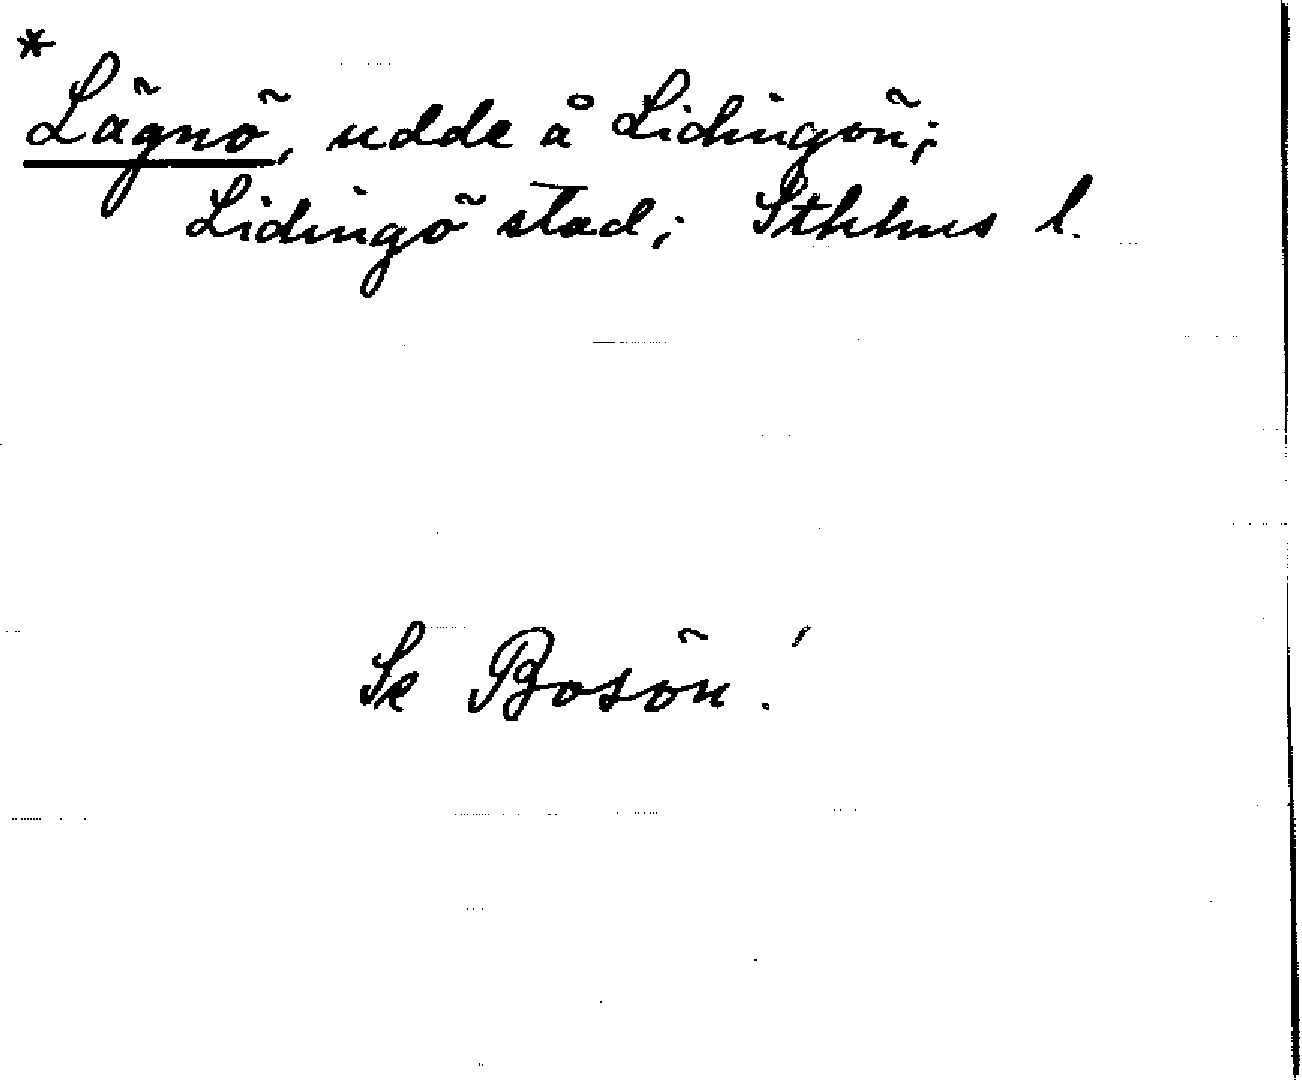 * Lägnö, udde å Lidingön;
Lidingö stad; Sthlms l.
Se Bosön!